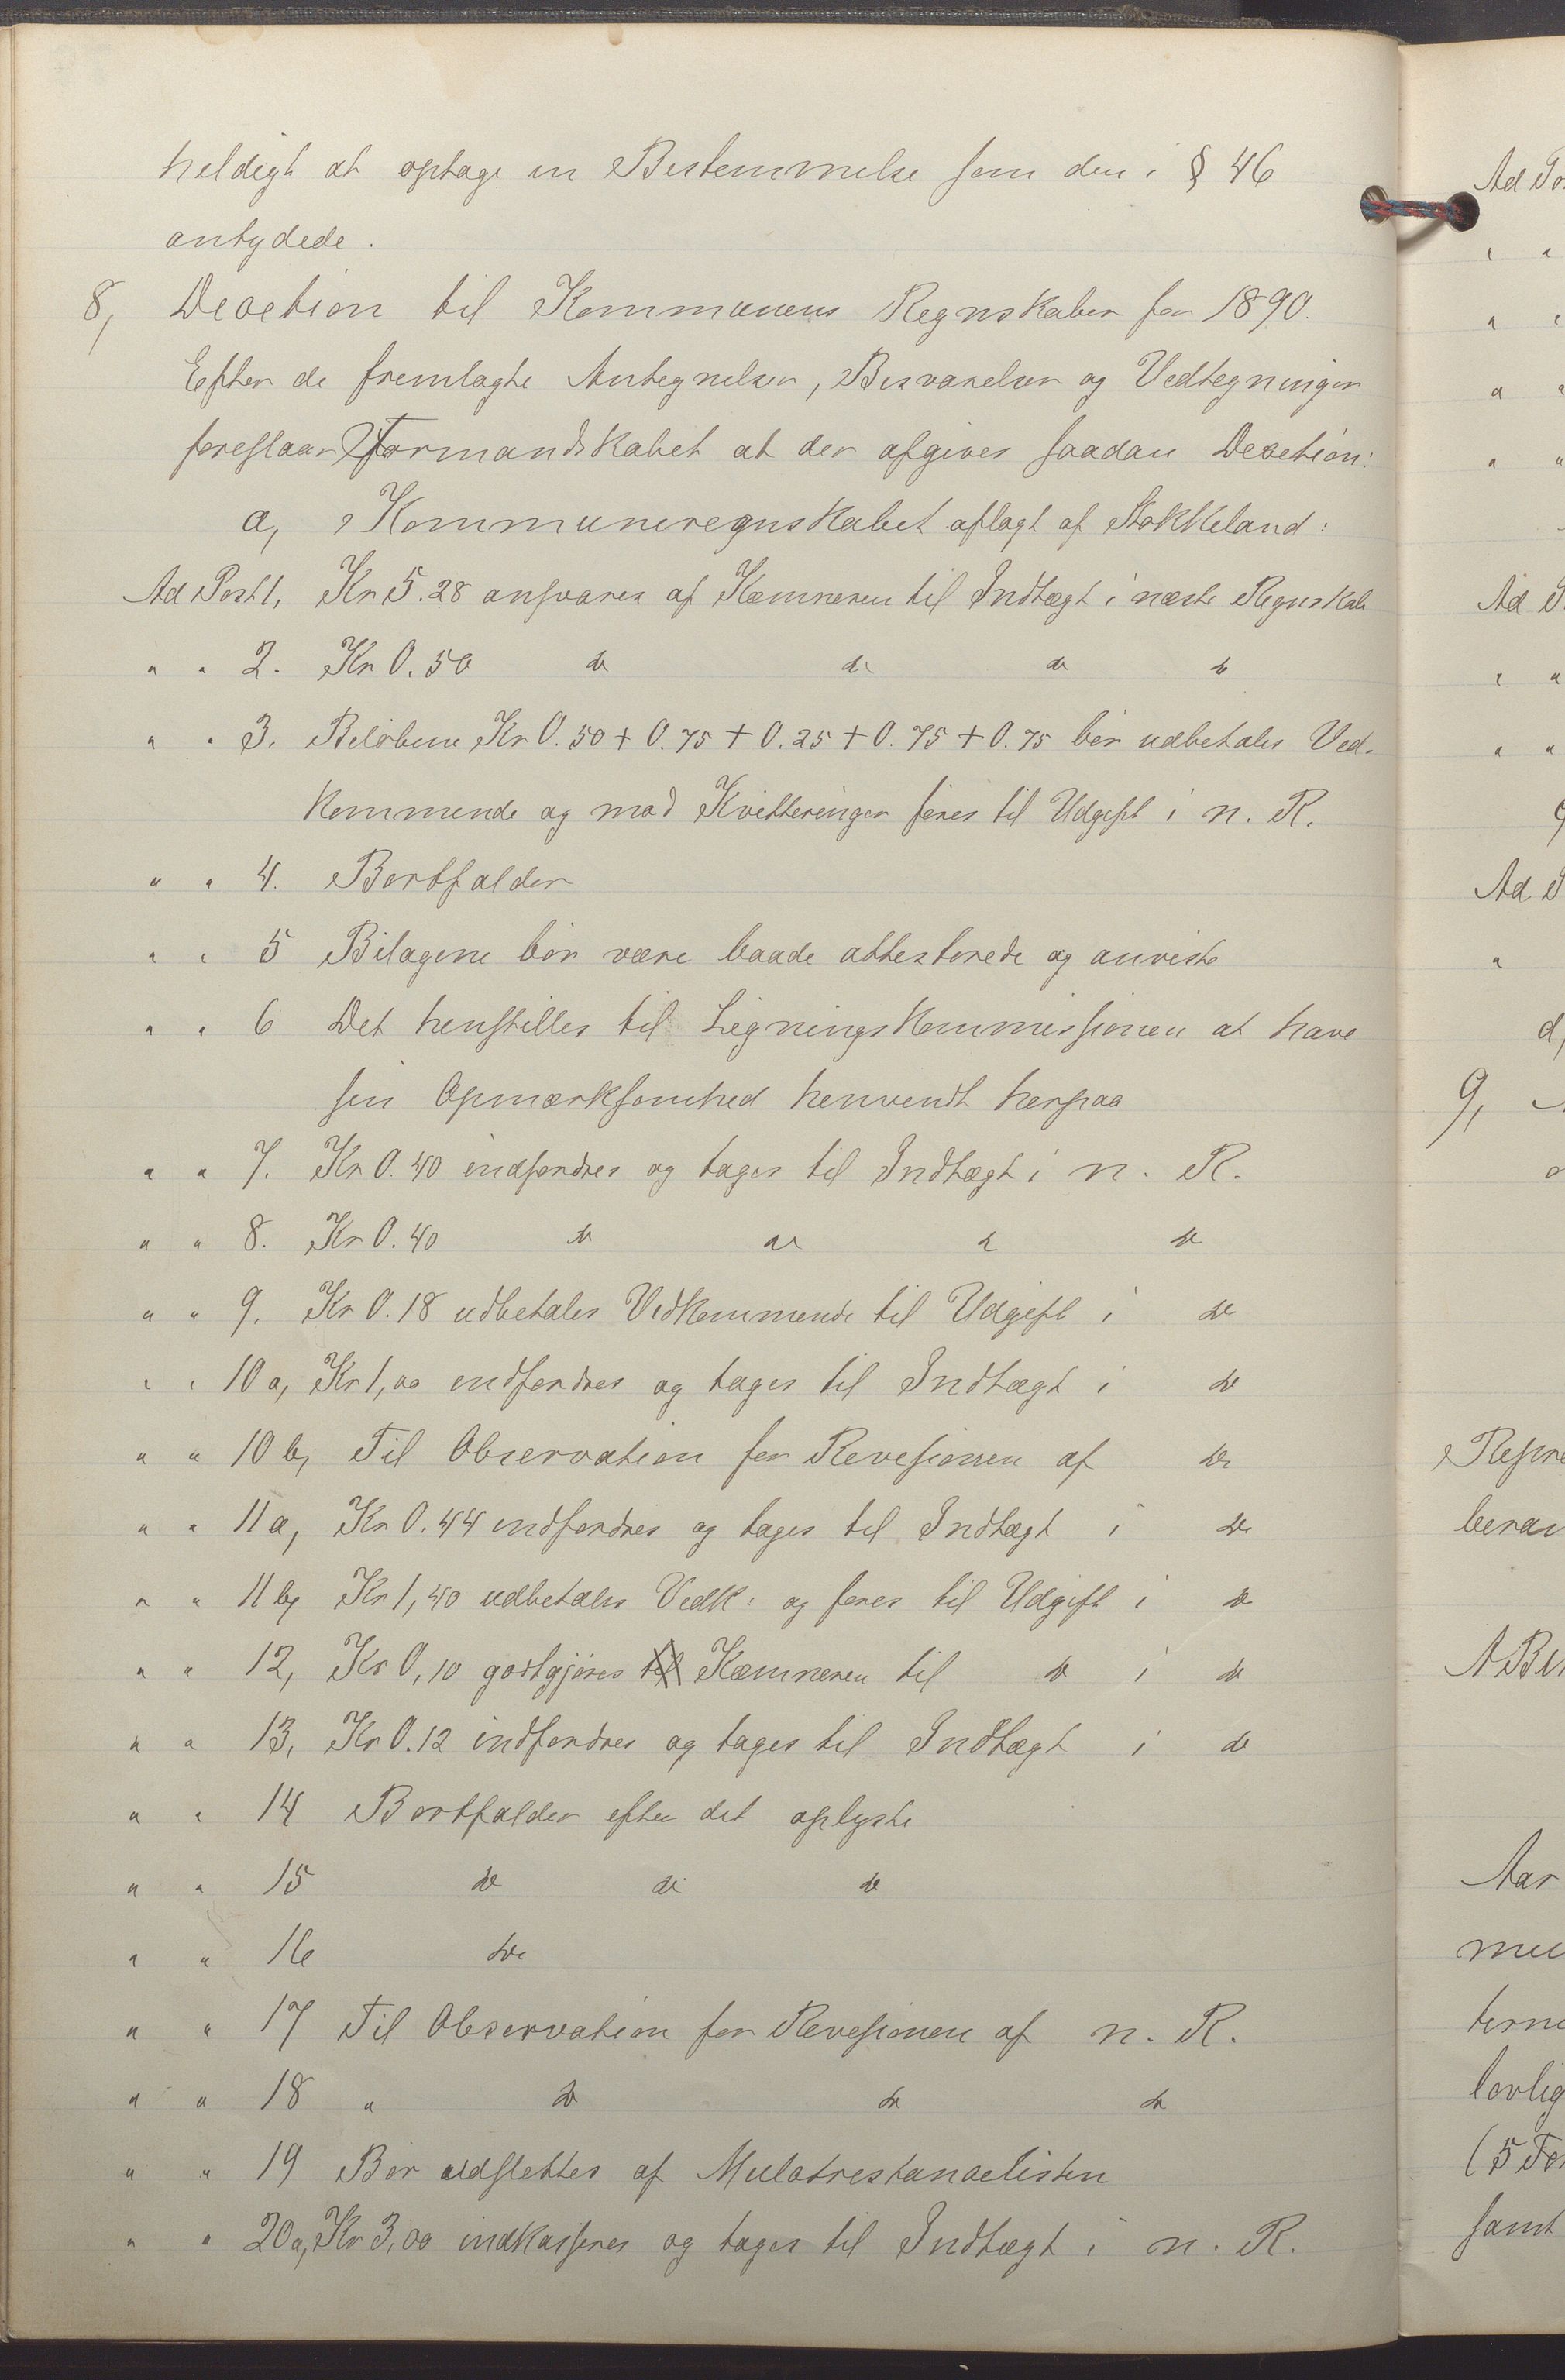 heldigt at optage en Bestemmelse som den i § 46
antydede.
8, Decetion til Kommunens Regnskaber for 1890.
Efter de fremlagte Antegnelser, Besvarelser og Vedtegninger
foreslaar Formandskabet at der afgives saadan Decetion:
a, Kommuneregnskabet aflagt af Stokkeland:
Ad Post 1, Kr 5.28 ansvares af Kæmneren til Indtægt i næste Regnskab
" " 2. Kr 0.50 do do do do
" " 3. Beløbene Kr 0.50 + 0.75 + 0.25 + 0.75 + 0.75 bør udbetales Ved-
kommende og mod Kvitteringer føres til Udgift i n. R.
" " 4. Bortfalder
" " 5 Bilagene bør være baade attesterede og anviste
" " 6 Det henstilles til Ligningskommissionen at have
sin Opmærksomhed henvendt herpaa
" " 7. Kr 0.40 indfordres og tages til Indtægt i n. R.
" " 8. Kr 0.40 do do " do
" " 9. Kr 0.18 udbetales Vedkommende til Udgift i do
" " 10 a, Kr 1,00 indfordres og tages til Indtægt i do
" " 10 b, Til Observation for Revesionen af do
" " 11 a, Kr 0.44 indfordres og tages til Indtægt i do
" " 11 b, Kr 1,40 udbetales Vedk: og føres til Udgift i do
" " 12, Kr 0,10 godtgjøres til Kæmneren til do i do
" " 13, Kr 0.12 indfordres og tages til Indtægt i do
" " 14 Bortfalder efter det oplyste
" " 15 do do do
" " 16 do
" " 17 Til Observation for Revesionen af n. R.
" " 18 " do do do
" " 19 Bør udslettes af Mulatrestancelisten
" " 20 a, Kr 3,00 indkasseres og tages til Indtægt i n. R.
Ad
Ad
Ad
d,
9,
Aar
lovlig
(5
samt